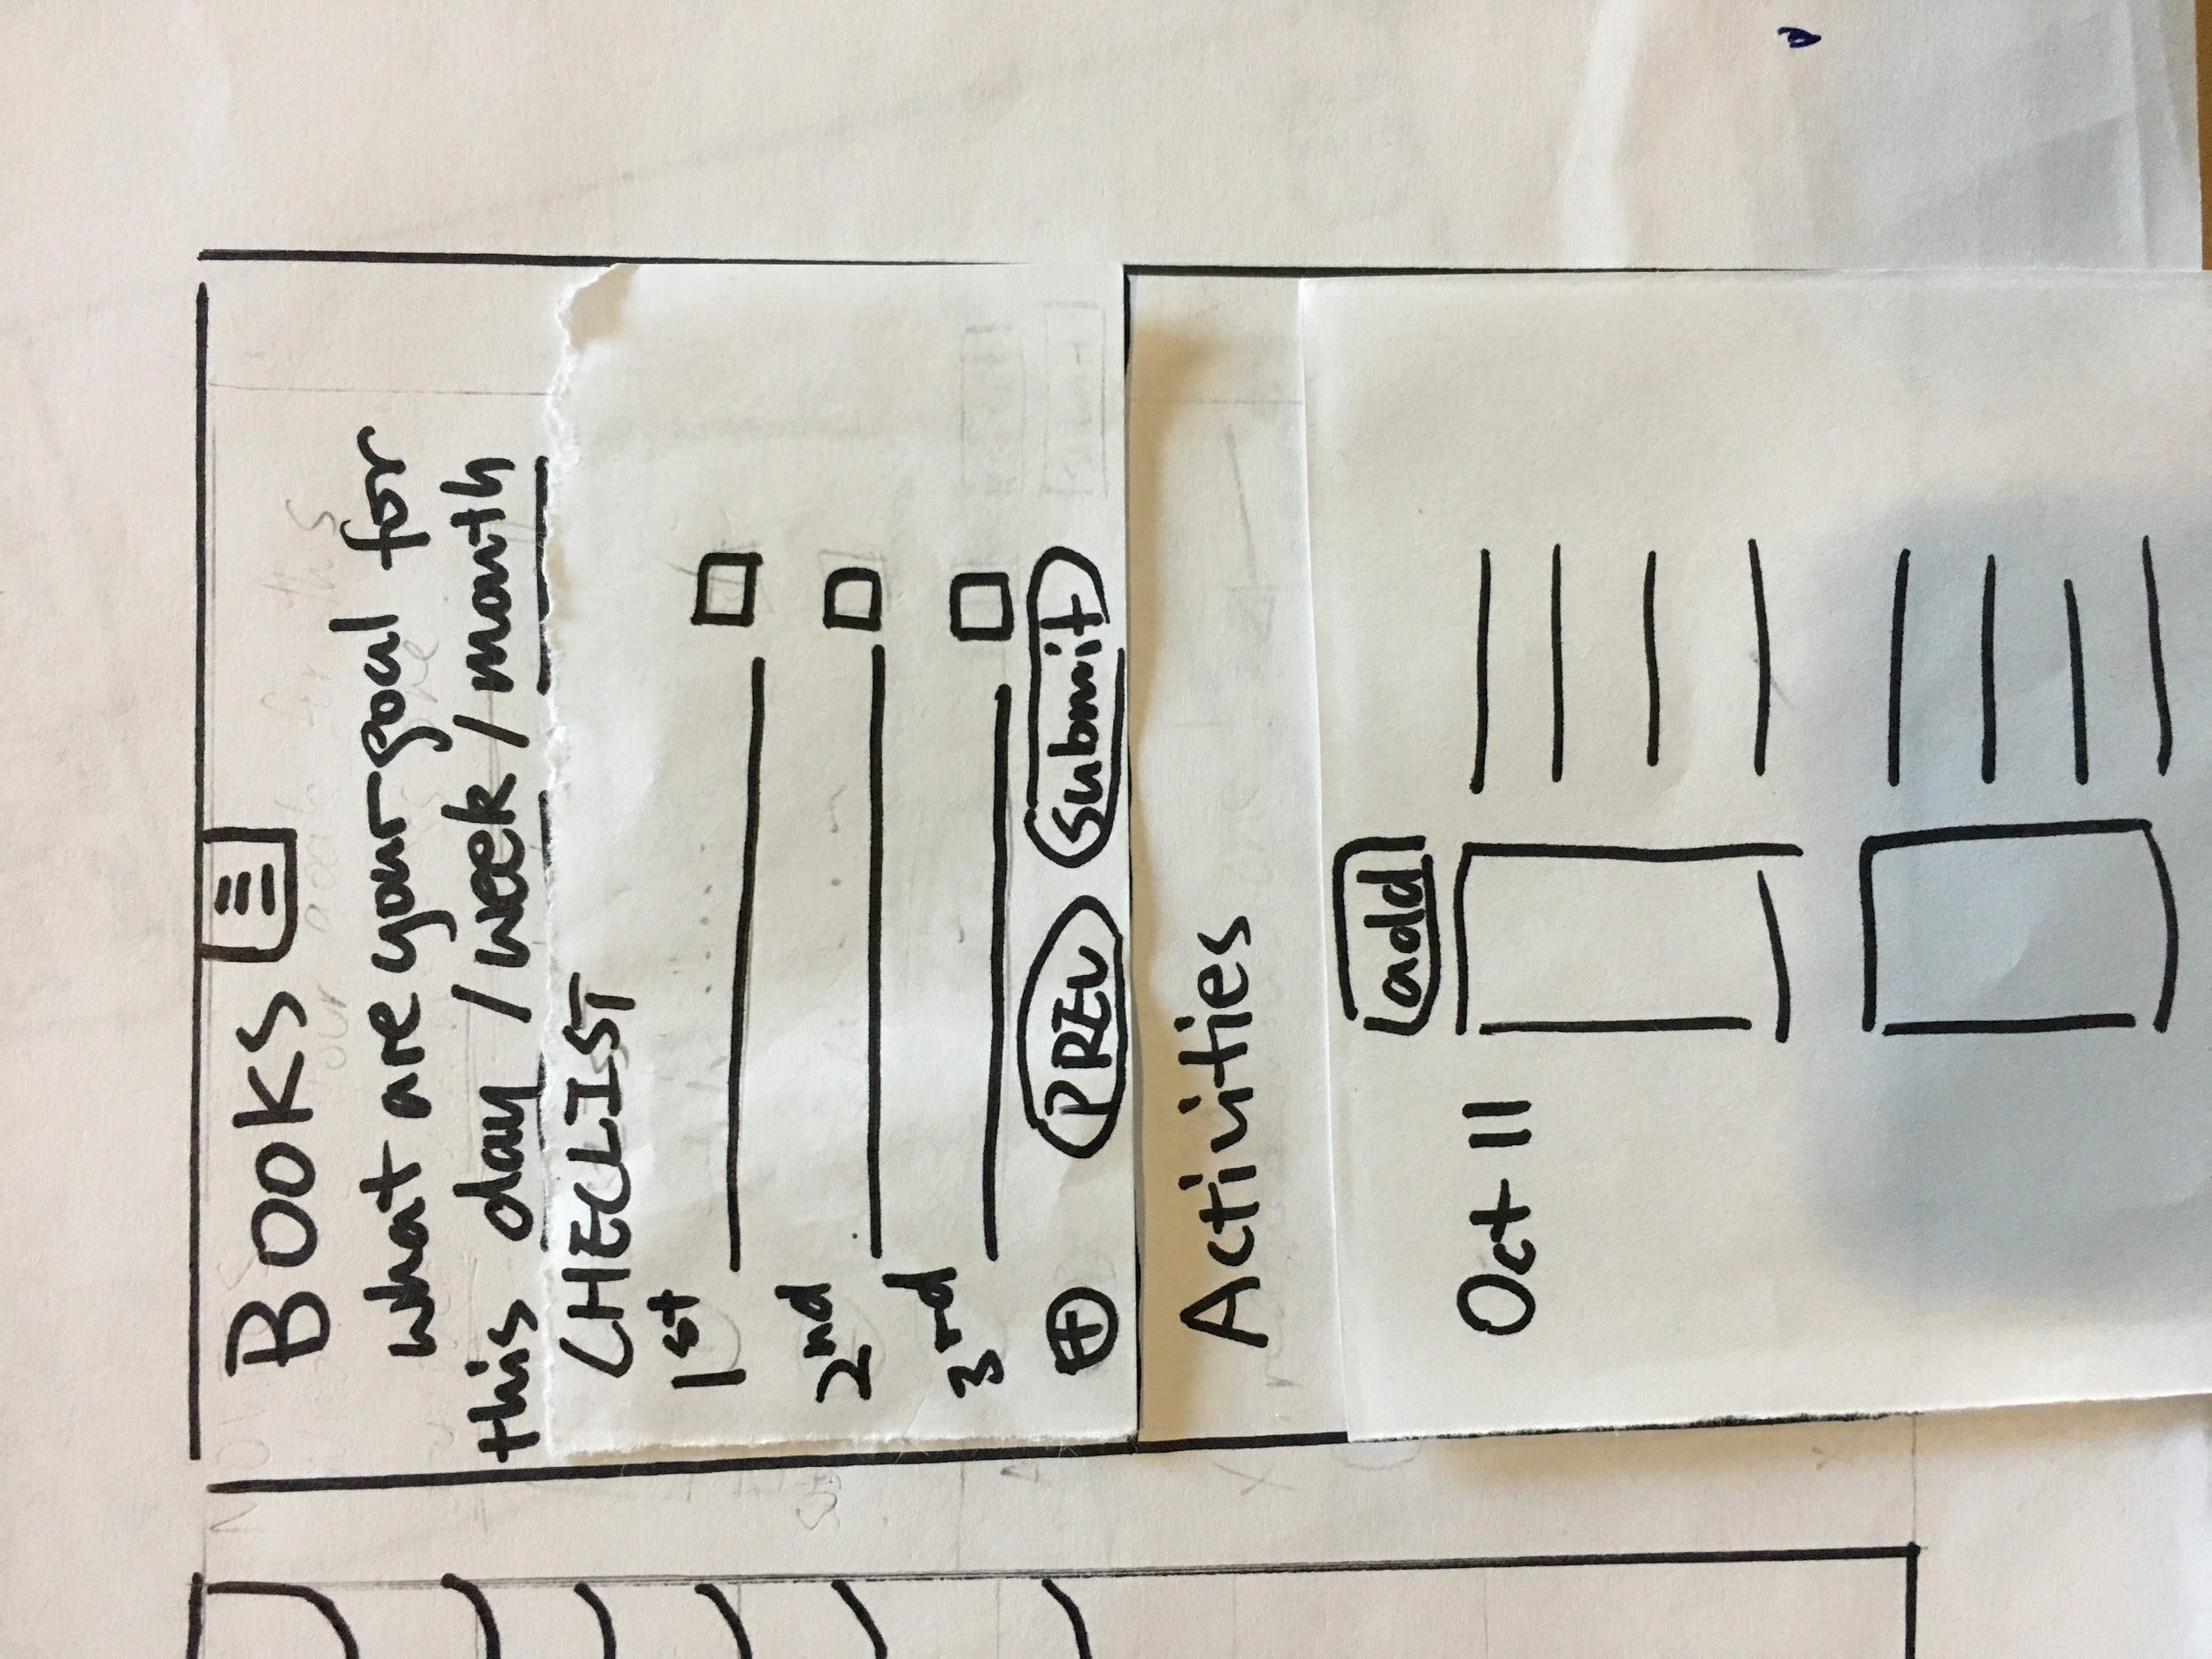 Books
what are your goal for
this day / week / month
CHECLIST
1st
2nd
3rd
PREV Submit
Activities
add
Oct 11